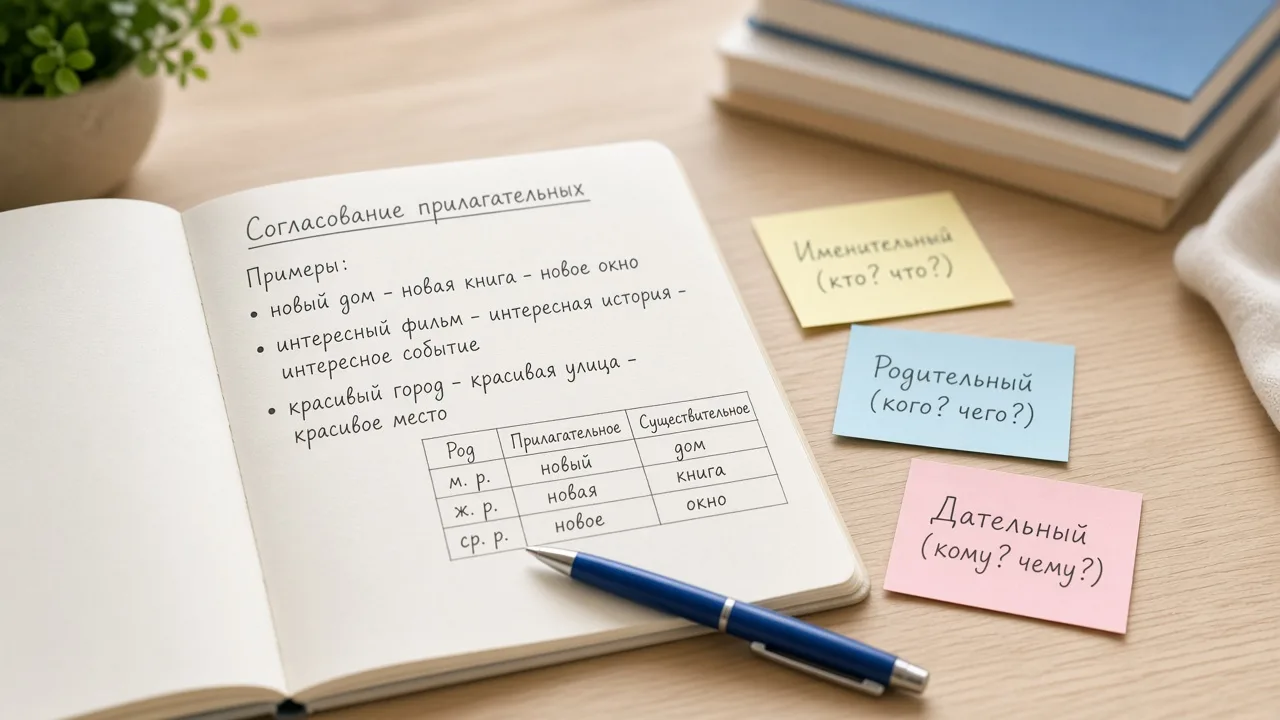 Согласование прилагательных
Примеры:
• новый дом – новая книга – новое окно
• интересный фильм – интересная история –
интересное событие
• красивый город – красивая улица –
красивое место
Род Прилагательное Существительное
м. р. новый дом
ж. р. новая книга
ср. р. новое окно
Именительный
(кто? что?)
Родительный
(кого? чего?)
Дательный
(кому? чему?)